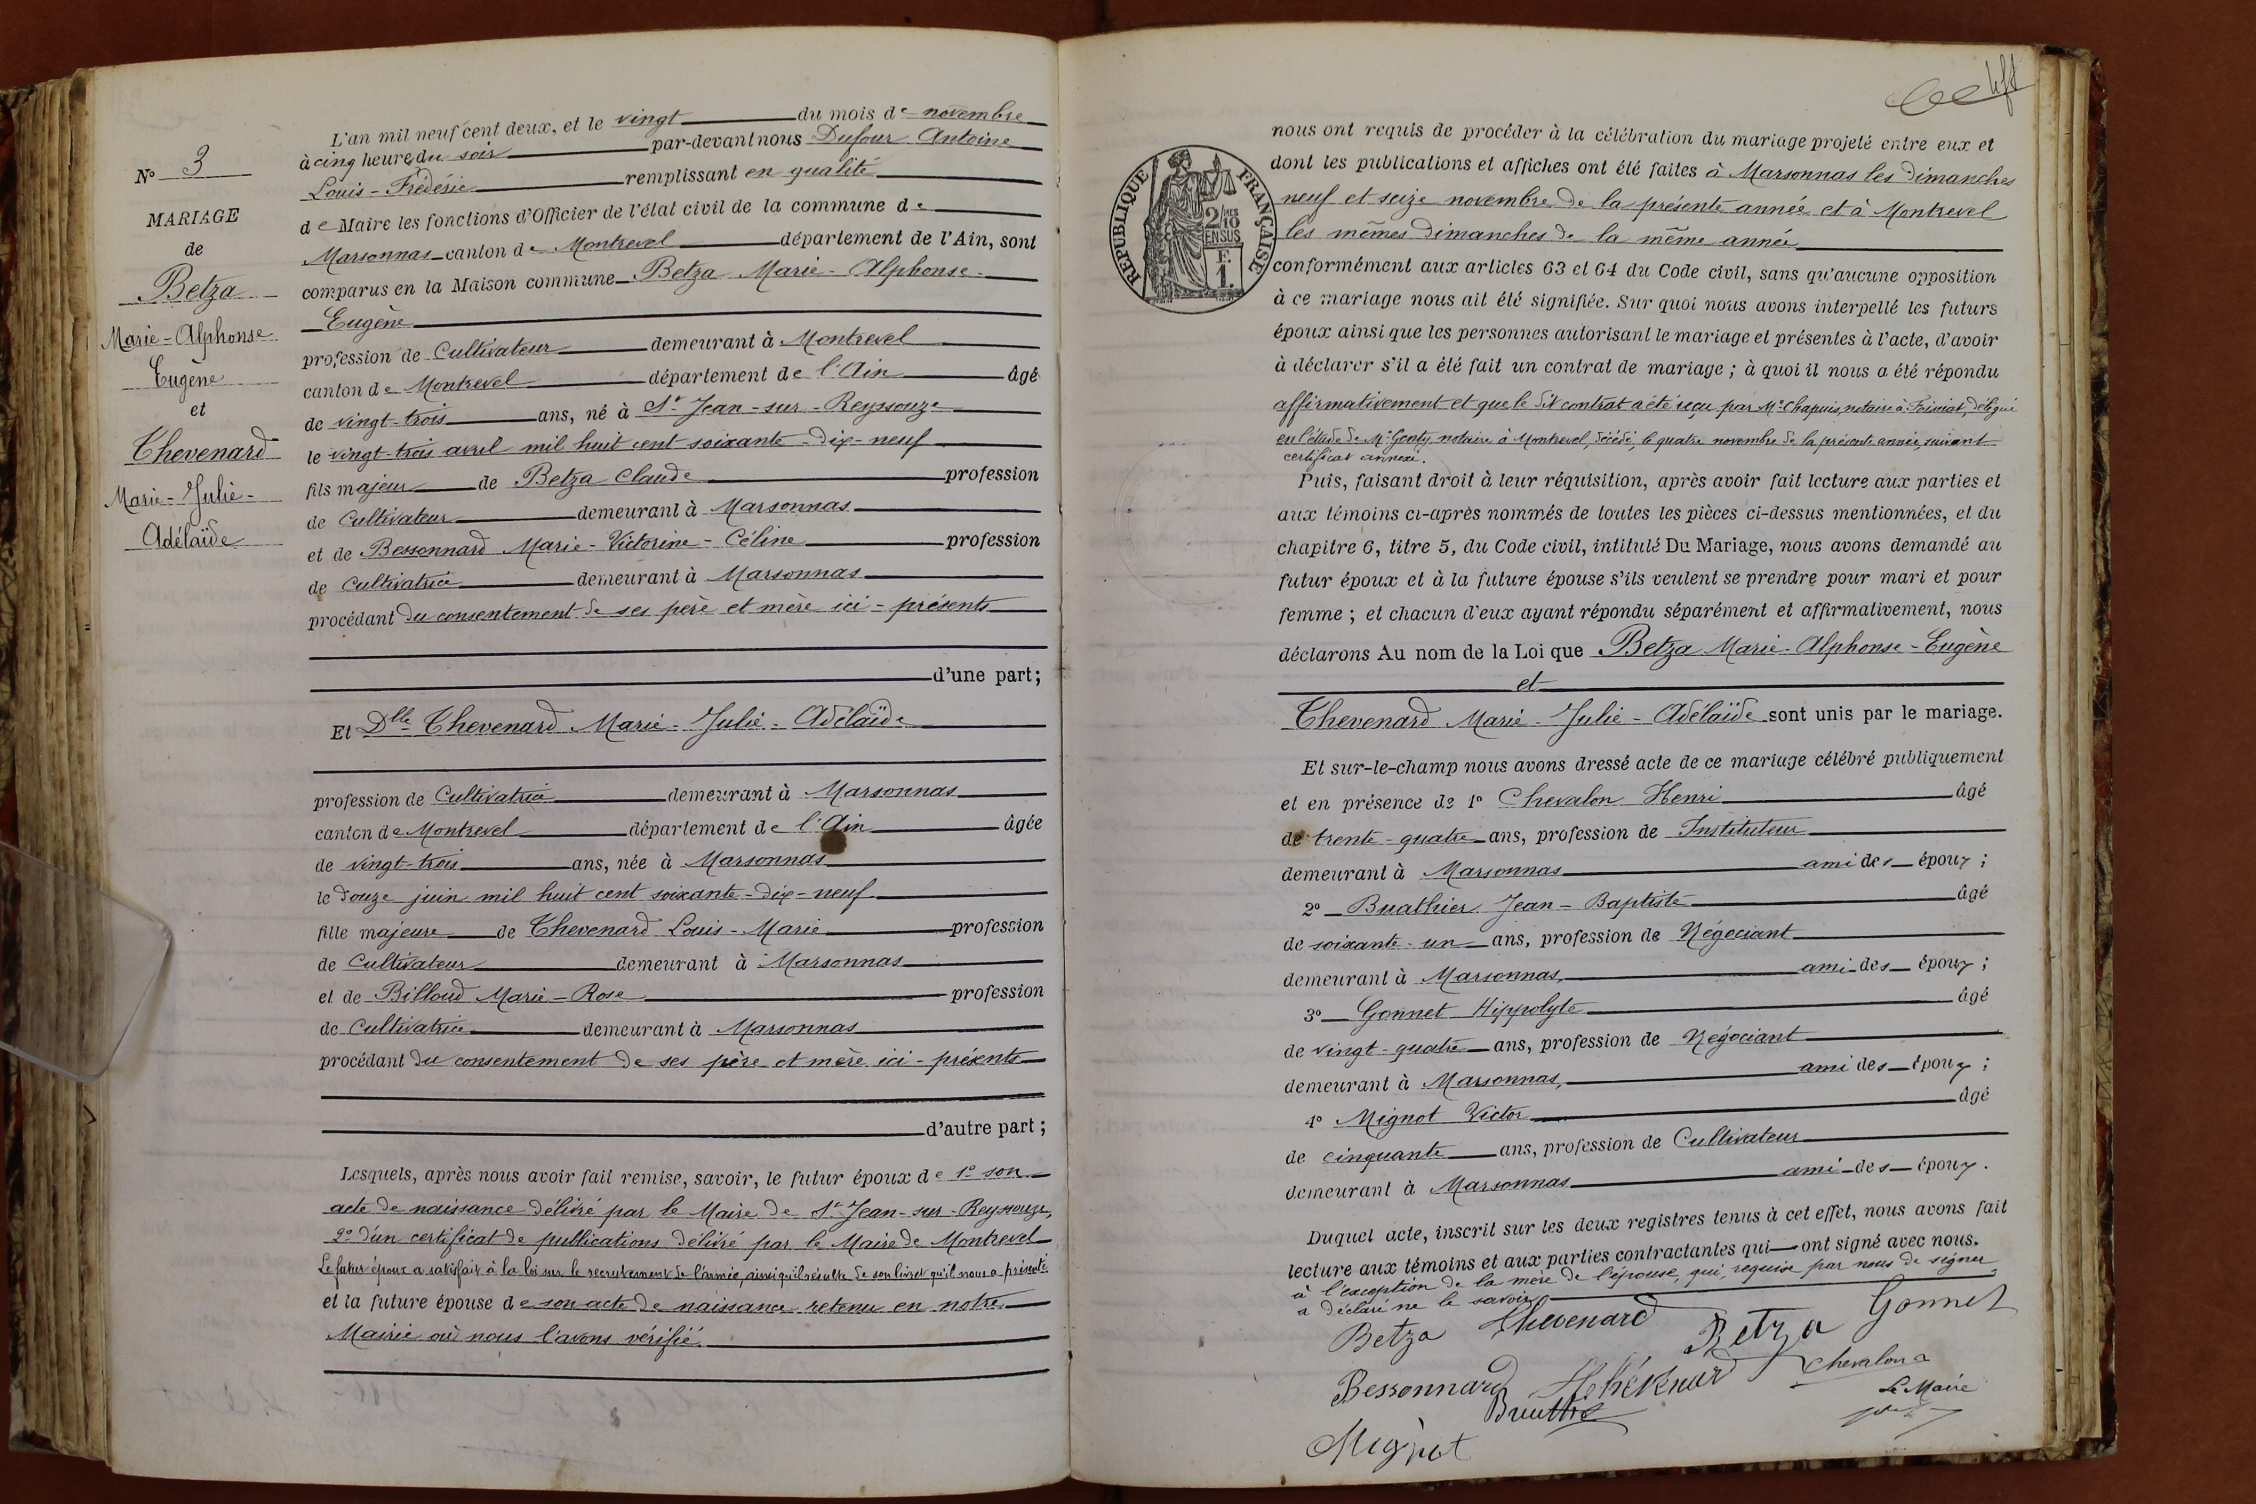 N° 3
MARIAGE
de
Betza
Marie-Alphonse
Eugène
et
Thevenard
Marie-Julie-
Adélaïde
L'an mil neuf cent deux, et le vingt du mois de novembre
à cinq heures du soir par-devant nous Dufour Antoine
Louis-Frédéric remplissant en qualité
de Maire les fonctions d'Officier de l'état civil de la commune de
Marsonnas canton de Montrevel département de l'Ain, sont
comparus en la Maison commune Betza Marie-Alphonse-
Eugène
profession de Cultivateur demeurant à Montrevel
canton de Montrevel département de l'Ain âgé
de vingt-trois ans, né à St Jean-sur-Reyssouze
le vingt-trois avril mil huit cent soixante-dix-neuf
fils majeur de Betza Claude profession
de Cultivateur demeurant à Marsonnas
et de Bessonnard Marie-Victorine-Céline profession
de Cultivatrice demeurant à Marsonnas
procédant du consentement de ses père et mère ici-présents
d'une part;
Et Dlle Thevenard Marie-Julie-Adélaïde
profession de Cultivatrice demeurant à Marsonnas
canton de Montrevel département de l'Ain âgée
de vingt-trois ans, née à Marsonnas
le douze juin mil huit cent soixante-dix-neuf
fille majeure de Thevenard Louis-Marie profession
de Cultivateur demeurant à Marsonnas
et de Billoud Marie-Rose profession
de Cultivatrice demeurant à Marsonnas
procédant du consentement de ses père et mère ici-présents
d'autre part;
Lesquels, après nous avoir fait remise, savoir, le futur époux de 1° son
acte de naissance délivré par le Maire de St Jean-sur-Reyssouze,
2° d'un certificat de publications délivré par le Maire de Montrevel
Le futur époux a satisfait à la loi sur le recrutement de l'armée, ainsi qu'il résulte de son livret qu'il nous a présenté
et la future épouse de son acte de naissance retenu en notre
Mairie où nous l'avons vérifié.
RÉPUBLIQUE FRANÇAISE
2/10 EN SUS
F.
1.
nous ont requis de procéder à la célébration du mariage projeté entre eux et
dont les publications et affiches ont été faites à Marsonnas les dimanches
neuf et seize novembre de la présente année et à Montrevel
les mêmes dimanches de la même année
conformément aux articles 63 et 64 du Code civil, sans qu'aucune opposition
à ce mariage nous ait été signifiée. Sur quoi nous avons interpellé les futurs
époux ainsi que les personnes autorisant le mariage et présentes à l'acte, d'avoir
à déclarer s'il a été fait un contrat de mariage; à quoi il nous a été répondu
affirmativement et que le dit contrat a été reçu par Me Chapuis, notaire à Foissiat, délégué
en l'étude de Me Genty, notaire à Montrevel, décédé, le quatre novembre de la présente année, suivant
certificat annexé.
Puis, faisant droit à leur réquisition, après avoir fait lecture aux parties et
aux témoins ci-après nommés de toutes les pièces ci-dessus mentionnées, et du
chapitre 6, titre 5, du Code civil, intitulé Du Mariage, nous avons demandé au
futur époux et à la future épouse s'ils veulent se prendre pour mari et pour
femme; et chacun d'eux ayant répondu séparément et affirmativement, nous
déclarons Au nom de la Loi que Betza Marie-Alphonse-Eugène
et
Thevenard Marie-Julie-Adélaïde sont unis par le mariage.
Et sur-le-champ nous avons dressé acte de ce mariage célébré publiquement
et en présence de 1° Chevalon Henri âgé
de trente-quatre ans, profession de Instituteur
demeurant à Marsonnas ami des époux;
2° Buathier Jean-Baptiste âgé
de soixante-un ans, profession de Négociant
demeurant à Marsonnas, ami des époux;
3° Gonnet Hippolyte âgé
de vingt-quatre ans, profession de Négociant
demeurant à Marsonnas, ami des époux;
4° Mignot Victor âgé
de cinquante ans, profession de Cultivateur
demeurant à Marsonnas ami des époux.
Duquel acte, inscrit sur les deux registres tenus à cet effet, nous avons fait
lecture aux témoins et aux parties contractantes qui ont signé avec nous.
à l'exception de la mère de l'épouse, qui, requise par nous de signer
a déclaré ne le savoir.
Betza Thevenard Betza Gonnet
Bessonnard Chevalon
Buathier Le Maire
Mignot